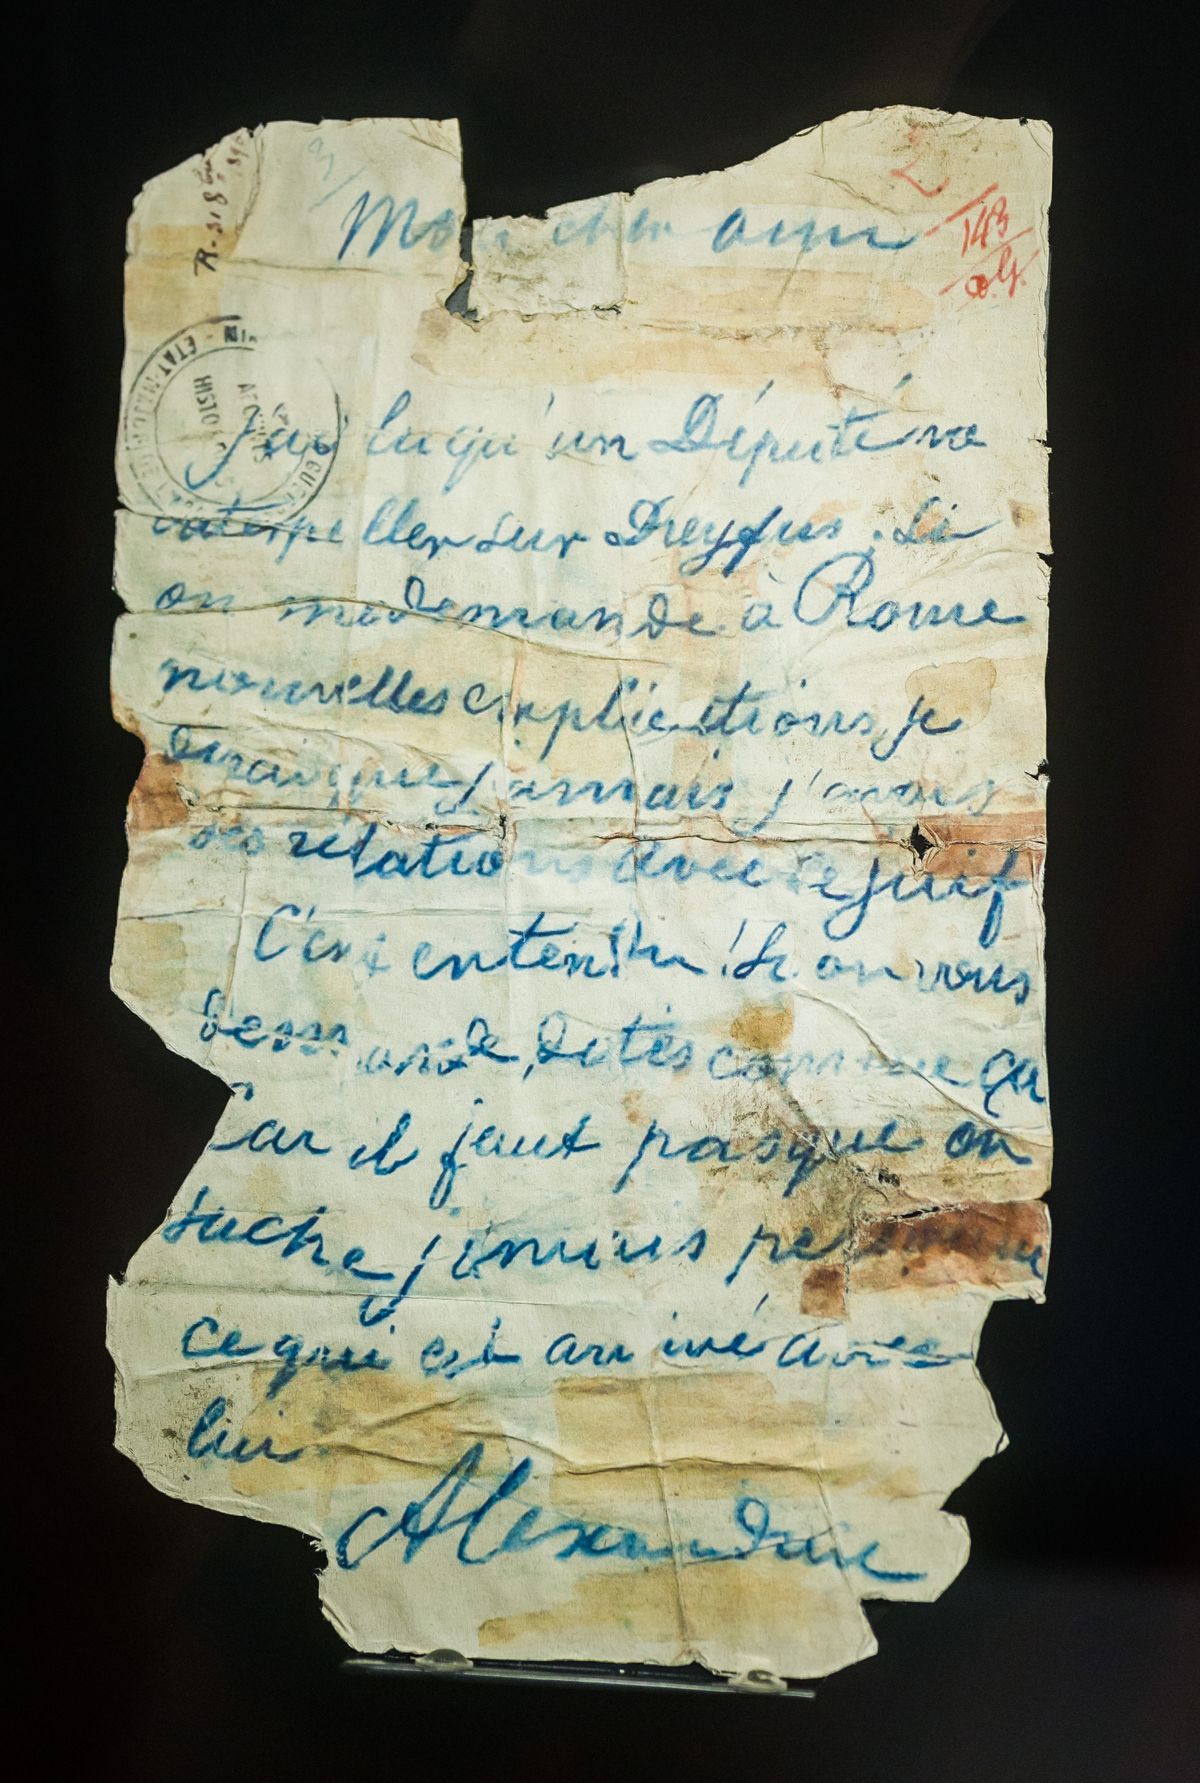 Mon cher ami
2
143
J'ai lu qu'un Député va
interpeller sur Dreyfus. Si
on me demande à Rome
nouvelles explications, je
dirai que jamais j'avais
des rélations avec ce juif
C'est entendu! Si on vous
demande, dites comme ça
Car il faut pas que on
sache jamais personne
ce qui est arrivé avec
lui
Alexandrine
ÉTAT-MAJOR
ARCHIVES